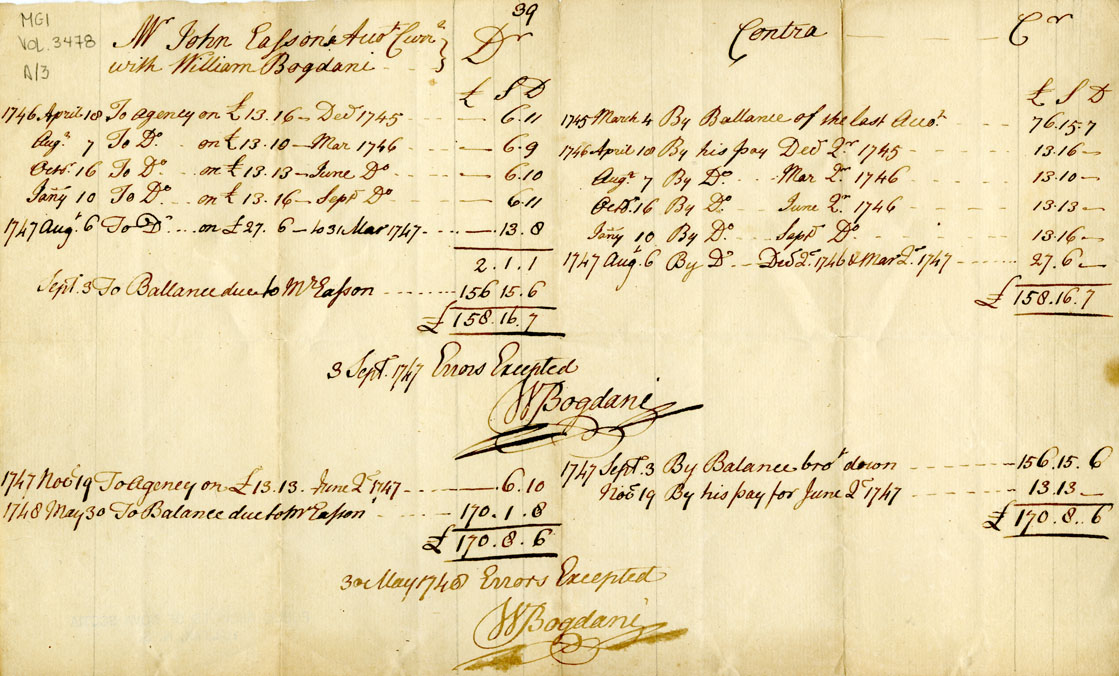 39
MG1
VOL. 3478
A/3
Mr John Easson's Accot. Curr.t
with William Bogdani
Dr
Contra
Cr
£ S D
£ S D
1746 April 18 To agency on £13.16 - Decr 1745 - 6.11
Augt 7 To Do. on £13.10 - Mar 1746 - 6.9
Octr. 16 To Do. on £13.13 - June Do - 6.10
Jany 10 To Do. on £13.16 - Septr Do - 6.11
1747 Augt 6 To Do on £27.6 - to 31 Mar 1747 - 13.8
2.1.1
Sept. 3 To Ballance due to Mr Easson 156.15.6
£158.16.7
1745 March 4 By Ballance of the last Accot. 76.15.7
1746 April 18 By his pay Decr Qr 1745 13.16 -
Augt 7 By Do. Mar Qr. 1746 13.10 -
Octr. 16 By Do. June Qr. 1746 13.13 -
Jany 10 By Do. Septr Do. 13.16 -
1747 Augt 6 By Do Decr Qr. 1746 & Mar Qr. 1747 27.6 -
£158.16.7
3 Sept. 1747 Errors Excepted
WBogdani
1747 Novr 19 To Agency on £13.13. June Qr 1747 - 6.10
1748 May 30 To Balance due to Mr Easson 170.1.8
£170.8.6
1747 Sept. 3 By Balance brot down 156.15.6
Novr 19 By his pay for June Qr 1747 13.13 -
£170.8.6
30 May 1748 Errors Excepted
WBogdani